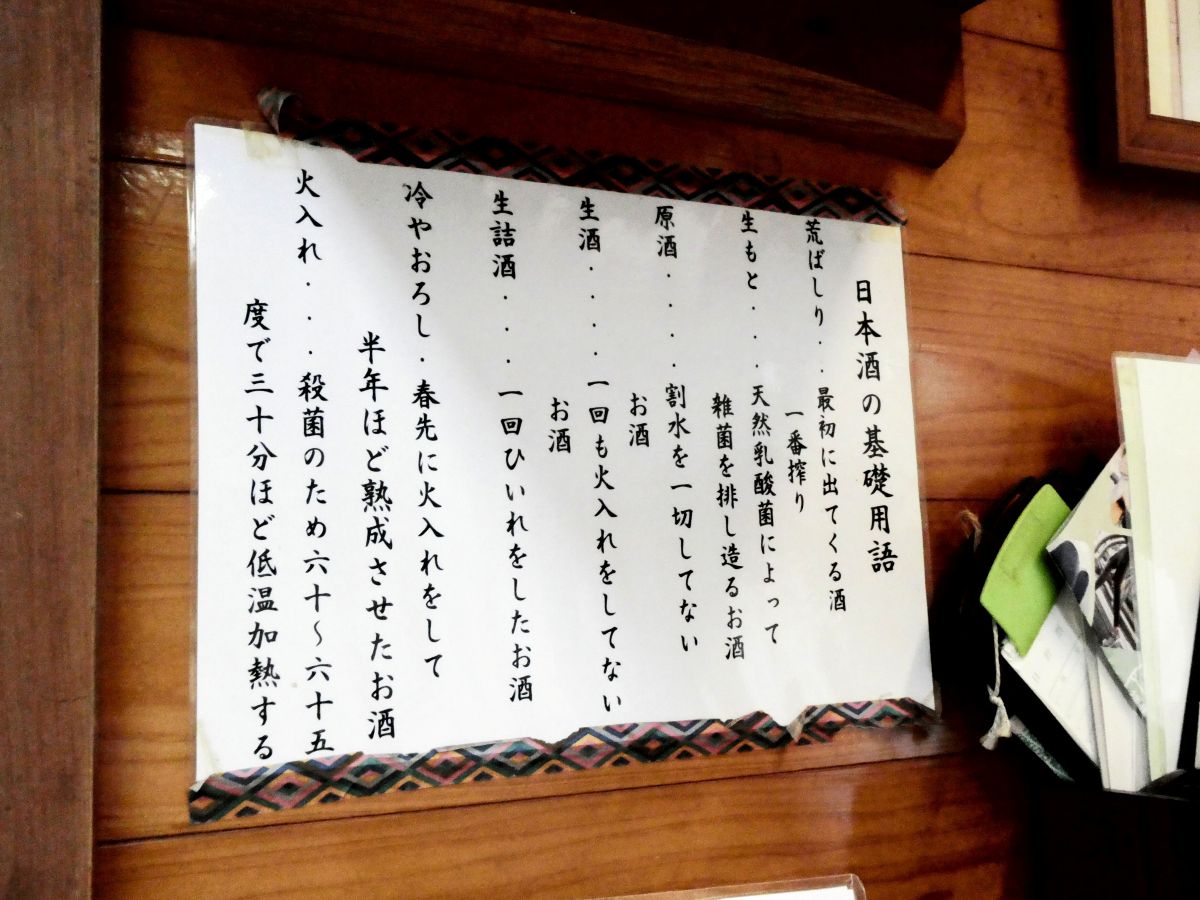 日本酒の基礎用語
荒ばしり・・最初に出てくる酒
一番搾り
生もと・・・天然乳酸菌によって
雑菌を排し造るお酒
原酒・・・・割水を一切してない
お酒
生酒・・・・一回も火入れをしてない
お酒
生詰酒・・・一回ひいれをしたお酒
冷やおろし・春先に火入れをして
半年ほど熟成させたお酒
火入れ・・・殺菌のため六十〜六十五
度で三十分ほど低温加熱する